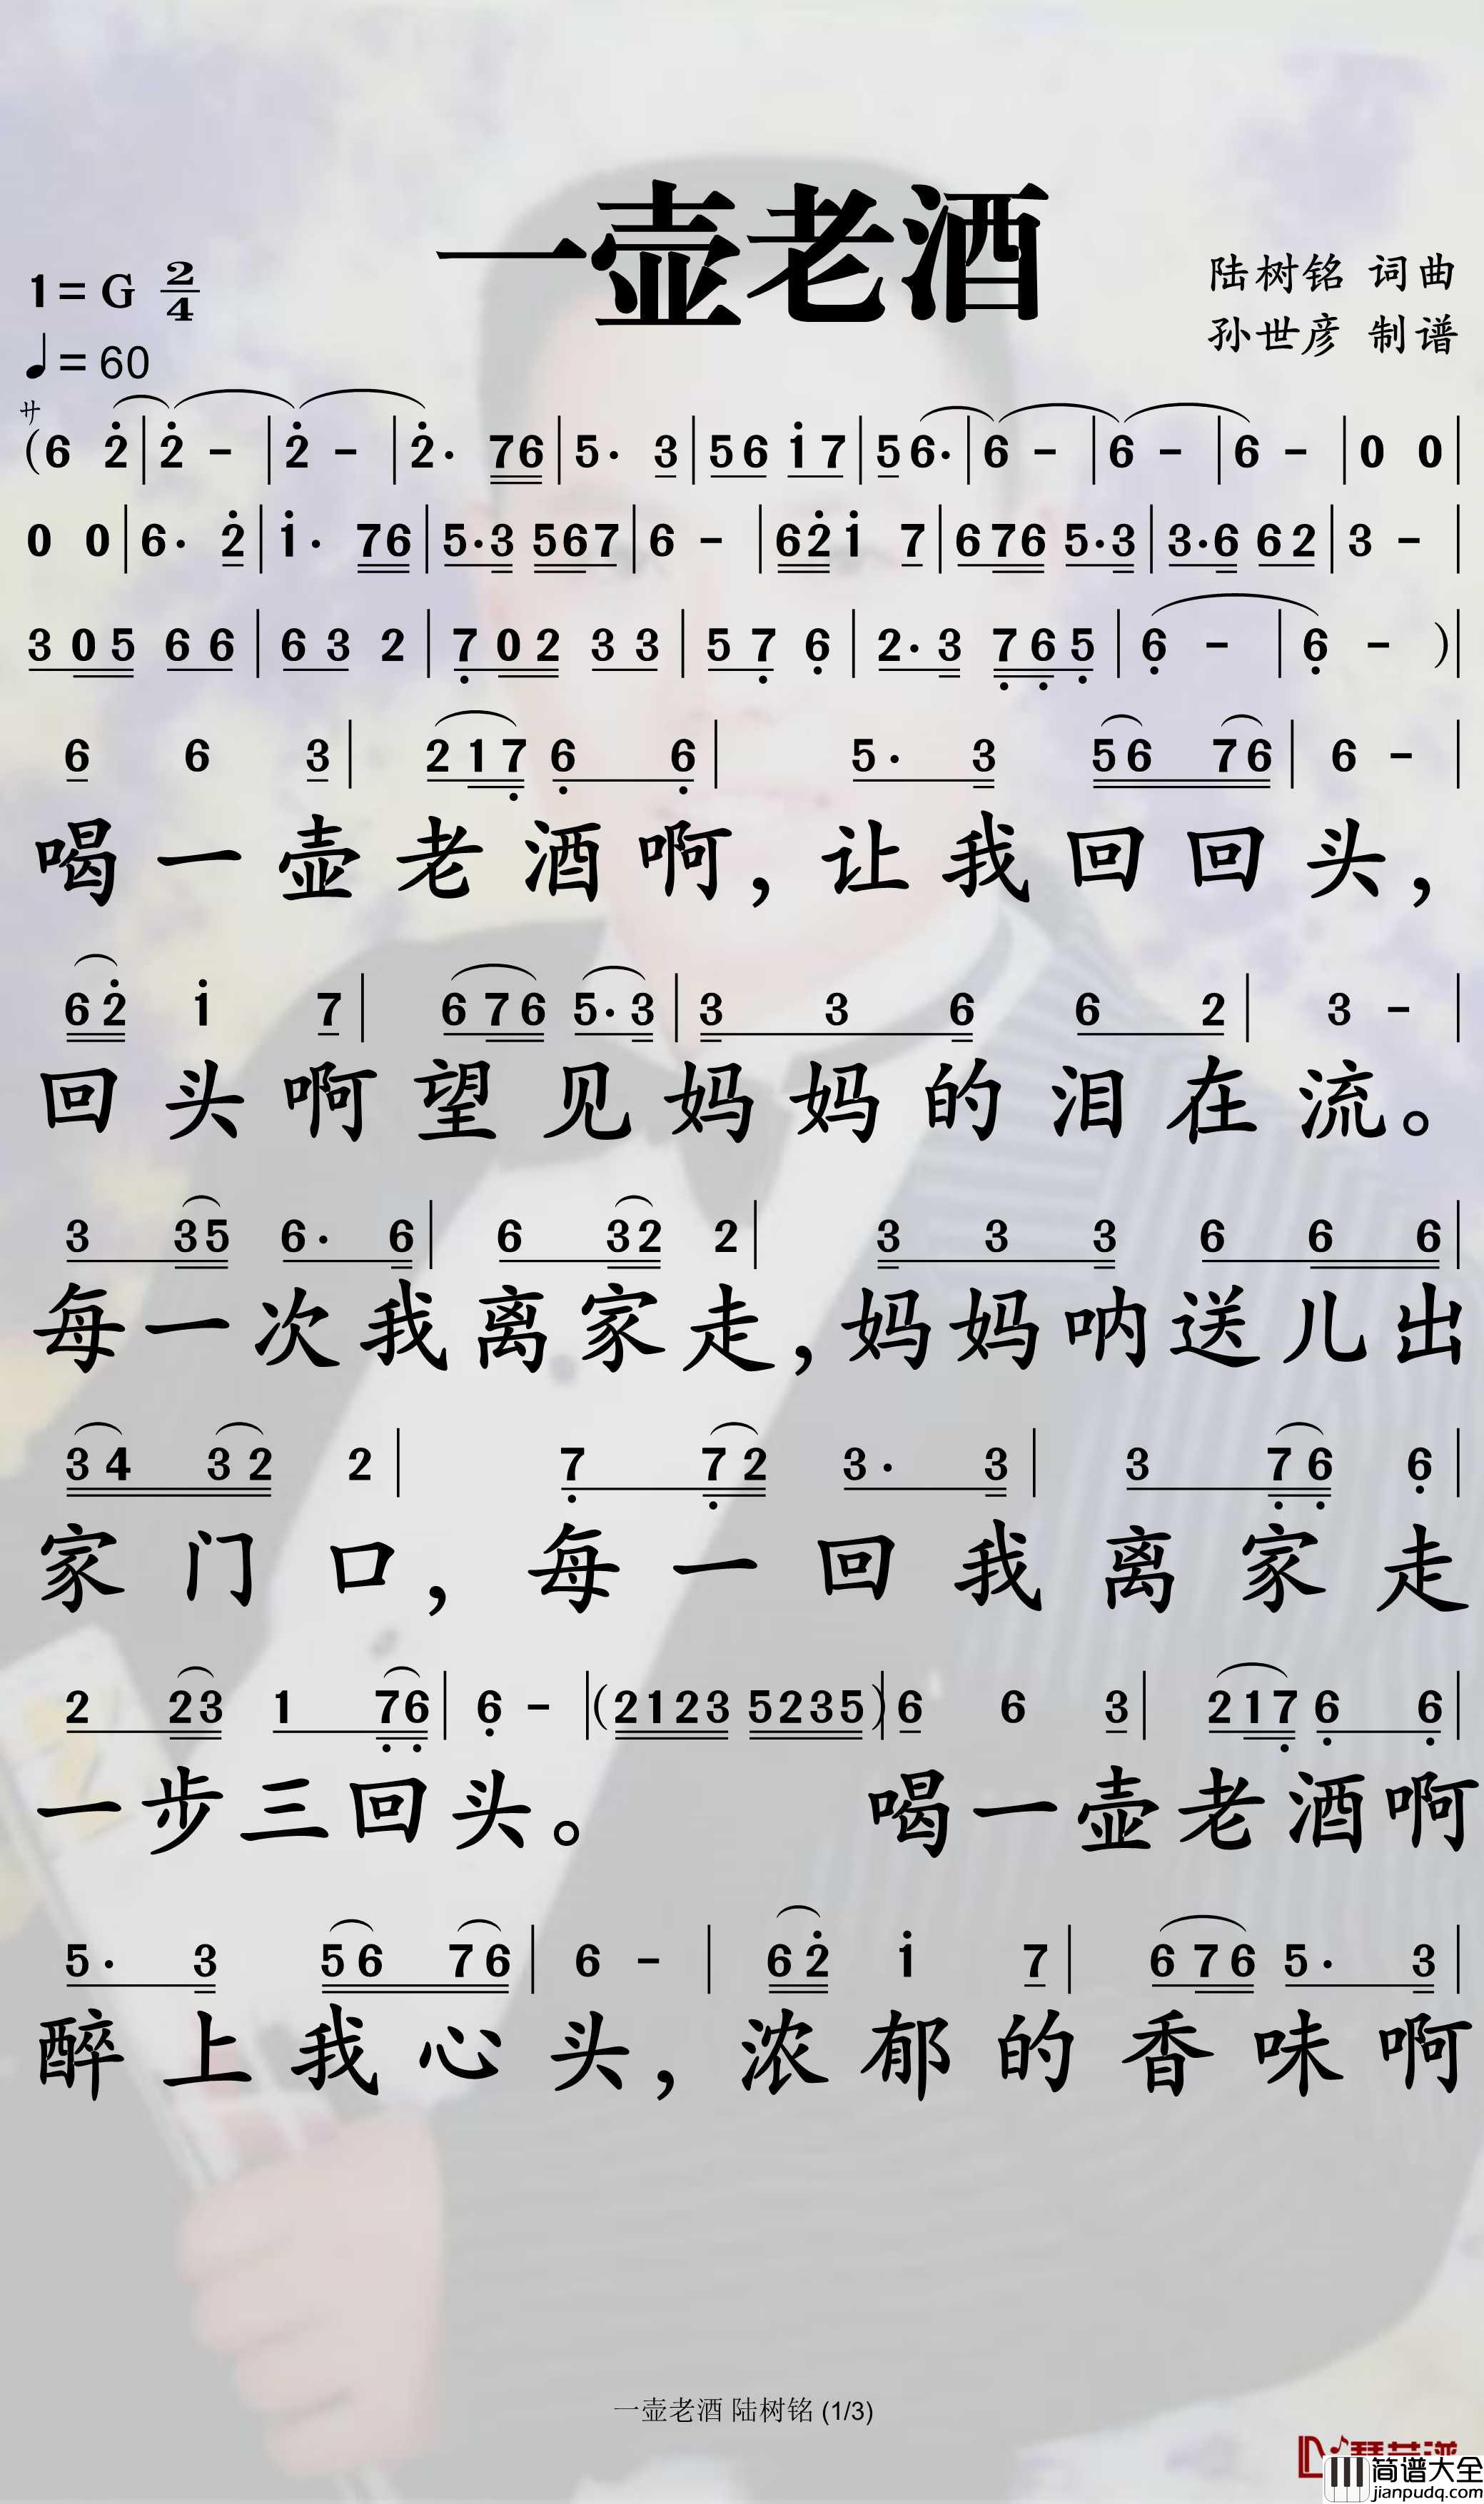 一壶老酒
陆树铭 词曲
孙世彦 制谱
1= G 2/4
♩= 60
サ
(6 2̇ | 2̇ - | 2̇ - | 2̇· 76 | 5· 3 | 56 1̇7 | 5 6· | 6 - | 6 - | 6 - | 0 0 |
0 0 | 6· 2̇ | 1̇· 76 | 5·3 567 | 6 - | 62̇ 1̇ 7 | 676 5·3 | 3·6 62 | 3 - |
3 05 66 | 63 2 | 7̣ 02 33 | 57̣ 6̣ | 2·3 7̣6̣5̣ | 6̣ - | 6̣ - ) |
6 6 3 | 217̣ 6̣ 6̣ | 5· 3 56 76 | 6 - |
喝一壶老酒啊，让我回回头，
62̇ 1̇ 7 | 676 5·3 | 3 3 6 6 2 | 3 - |
回头啊望见妈妈的泪在流。
3 35 6· 6 | 6 32 2 | 3 3 3 6 6 6 |
每一次我离家走，妈妈呐送儿出
34 32 2 | 7̣ 7̣2 3· 3 | 3 7̣6̣ 6̣ |
家门口，每一回我离家走
2 23 1 7̣6̣ | 6̣ - | (2123 5235) | 6 6 3 | 217̣ 6̣ 6̣ |
一步三回头。 喝一壶老酒啊
5· 3 56 76 | 6 - | 62̇ 1̇ 7 | 676 5· 3 |
醉上我心头，浓郁的香味啊
一壶老酒 陆树铭 (1/3)
简谱大全
jianpudq.com